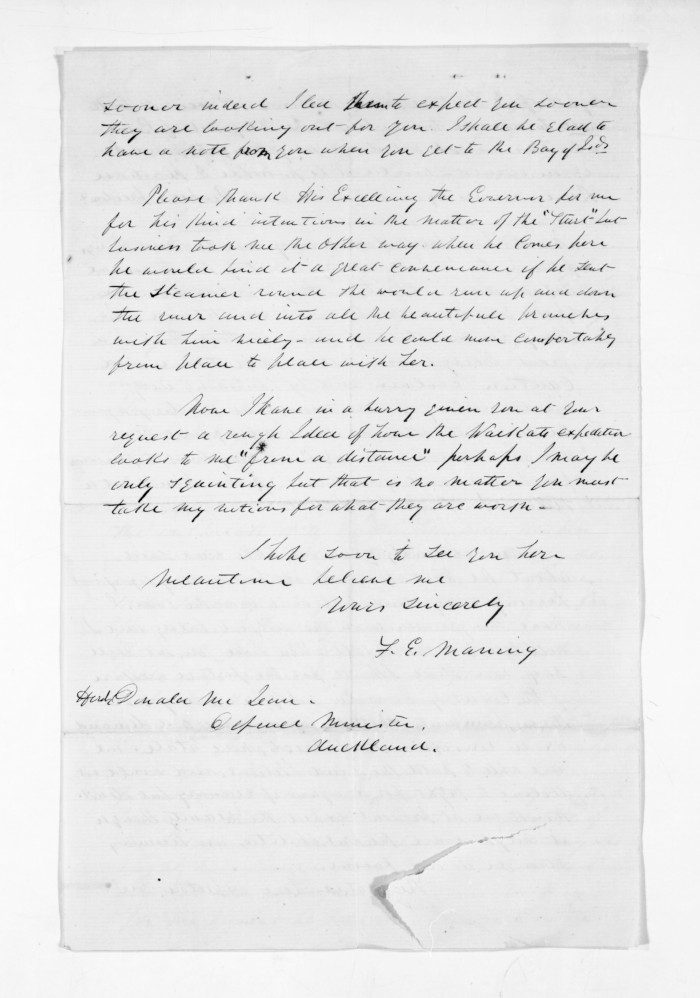 sooner indeed I led them to expect you sooner
they are looking out for you. I shall be glad to
have a note from you when you get to the Bay of Isds

Please thank His Excellency the Governor for me
for his kind intentions in the matter of the "Sturt" but
business took me the other way. when he comes here
he would find it a great convenience if he sent
the Steamer round she would run up and down
the river and into all the beautifull branches
with him nicely - and he could move comfortably
from place to place with her.

Now I have in a hurry given you at your
request a rough Idea of how the Waikato expedition
looks to me "from a distance" perhaps I may be
only squinting but that is no matter you must
take my notions for what they are worth -

I hope soon to see you here
Meantime believe me
Yours sincerely
F. E. Maning

Honble Donald McLean.
Defence Minister.
Auckland.